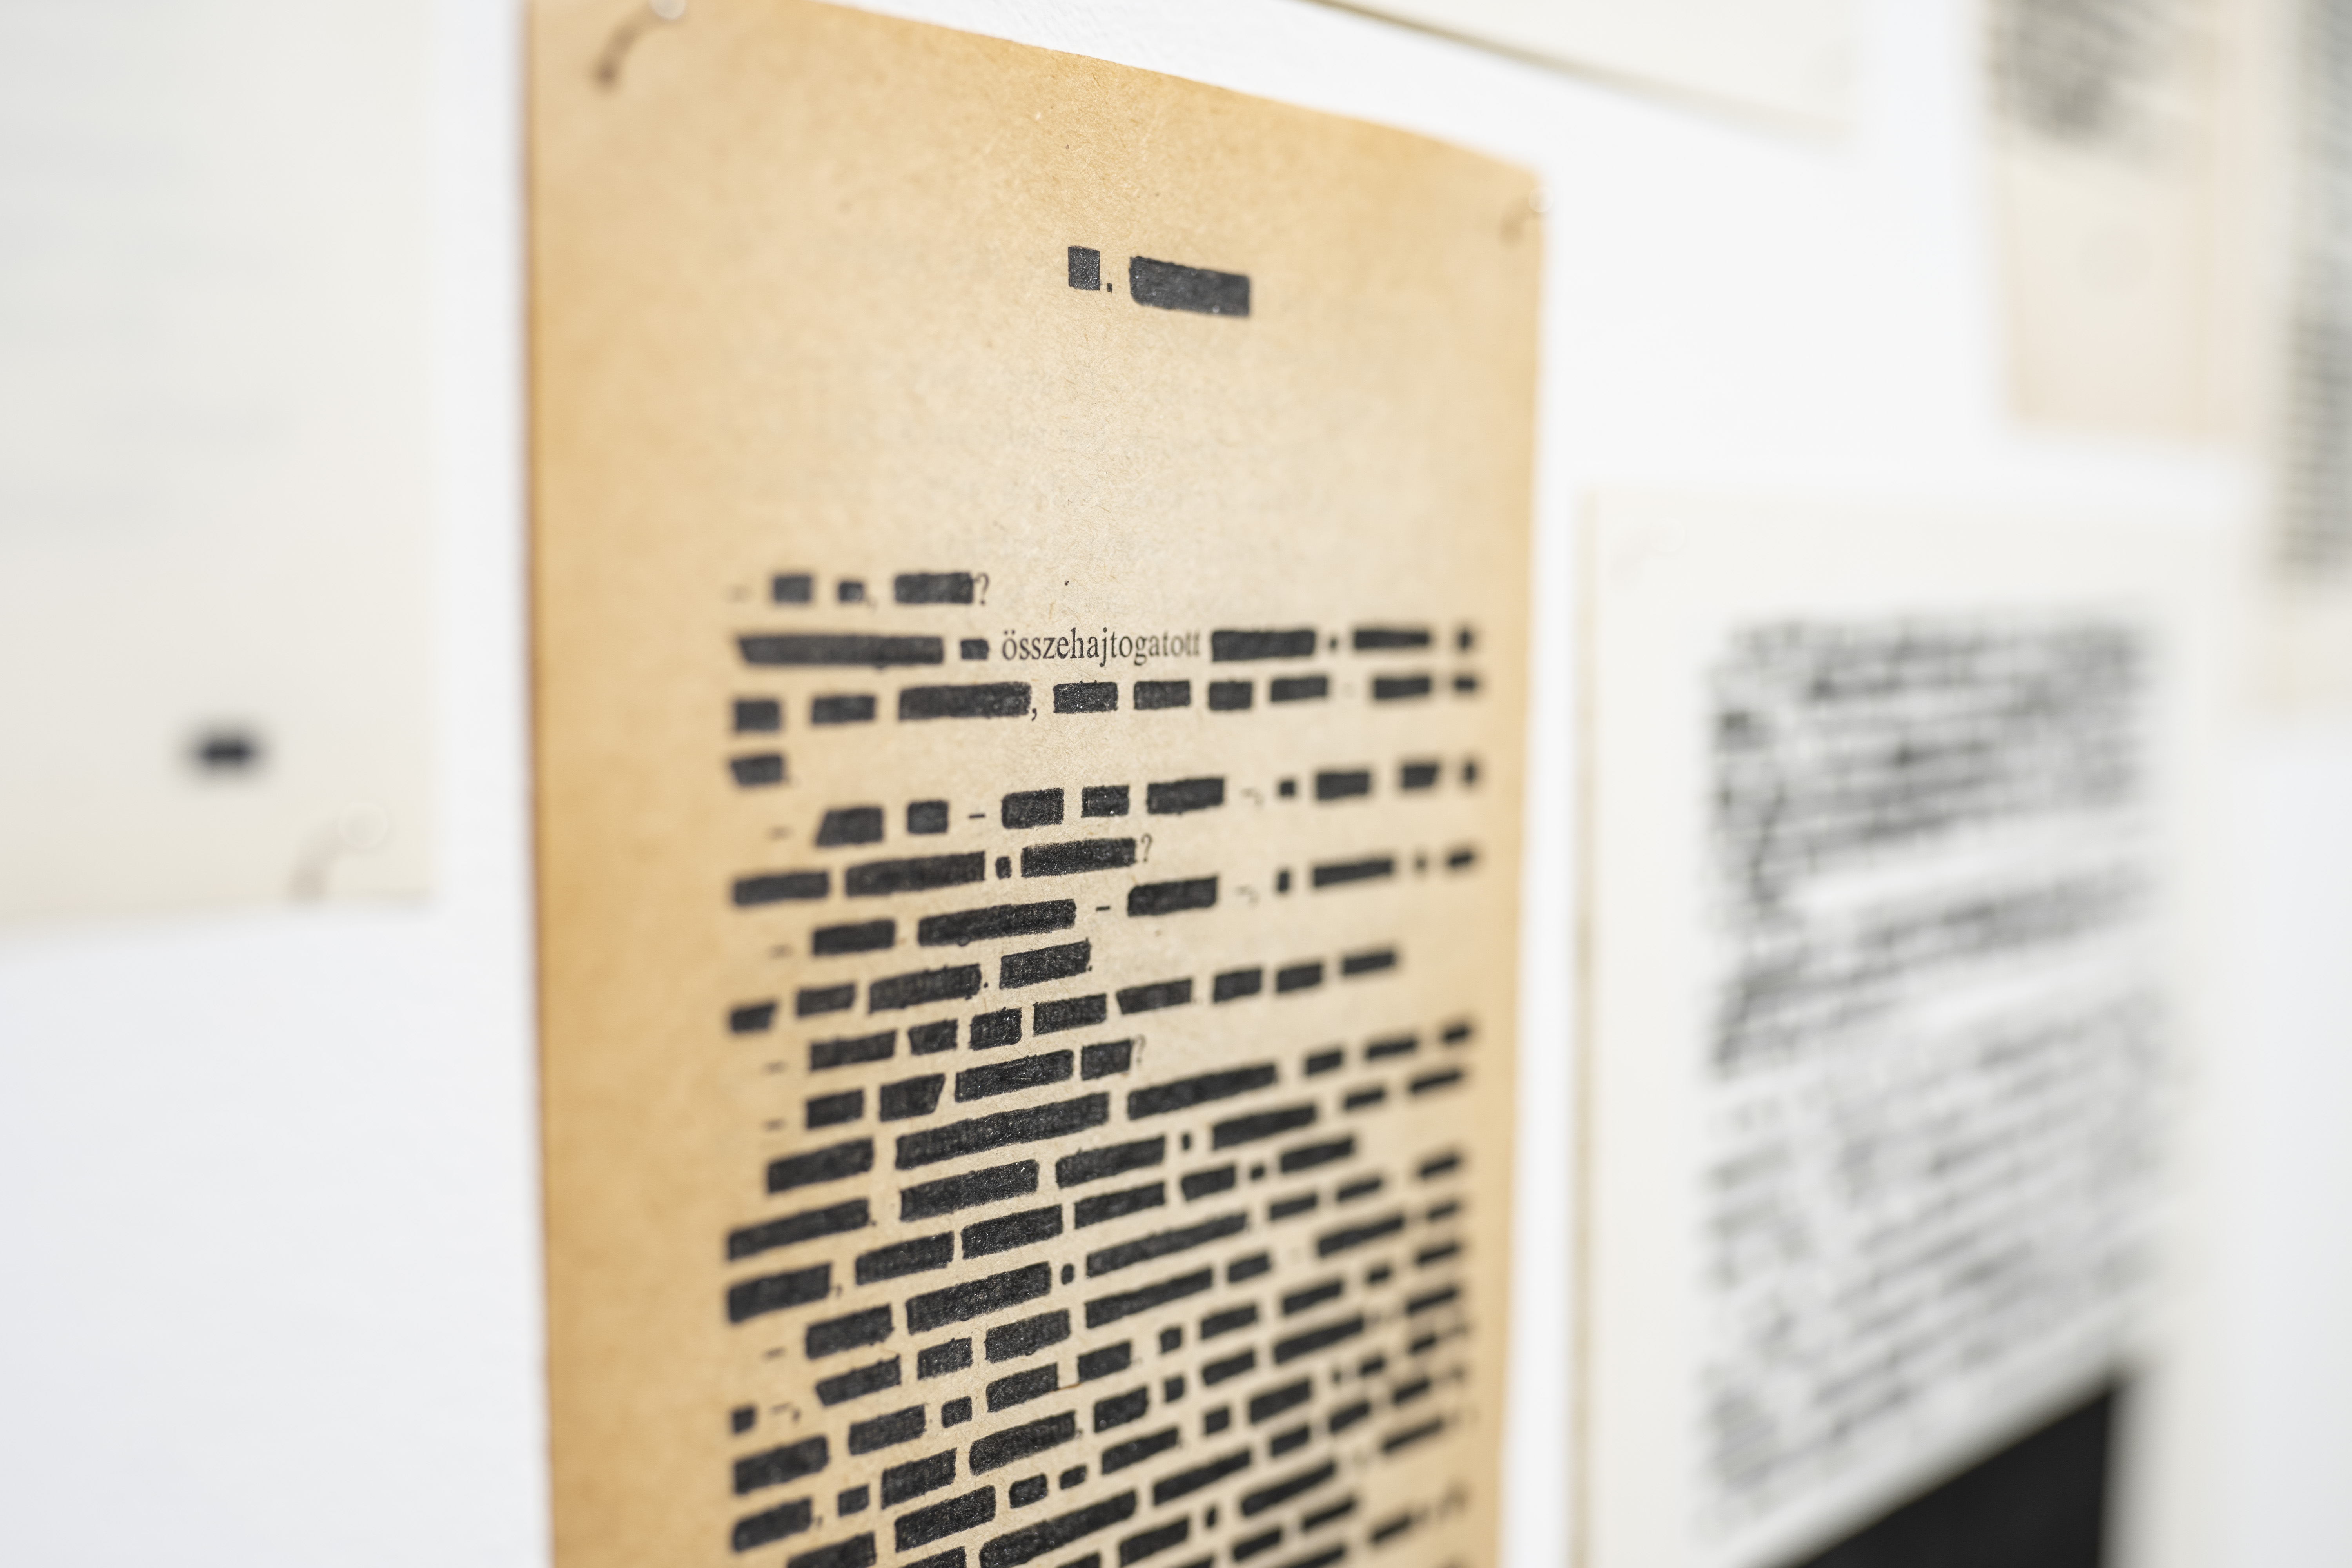 ?
összehajtogatott
,
–
?
–
.
?